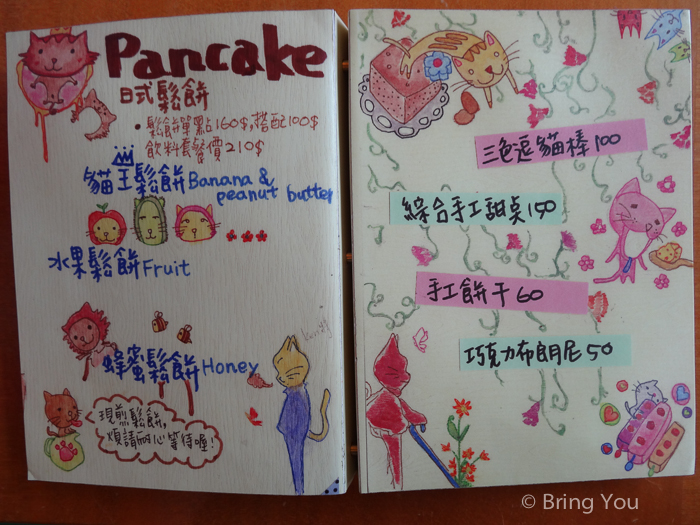 Pancake
日式鬆餅
•鬆餅單點160$,搭配100$
飲料套餐價210$
貓王鬆餅Banana &
peanut butter
水果鬆餅Fruit
蜂蜜鬆餅Honey
現煎鬆餅,
煩請耐心等待喔!
三色逗貓棒100
綜合手工甜桌150
手工餅干60
巧克力布朗尼50
© Bring You